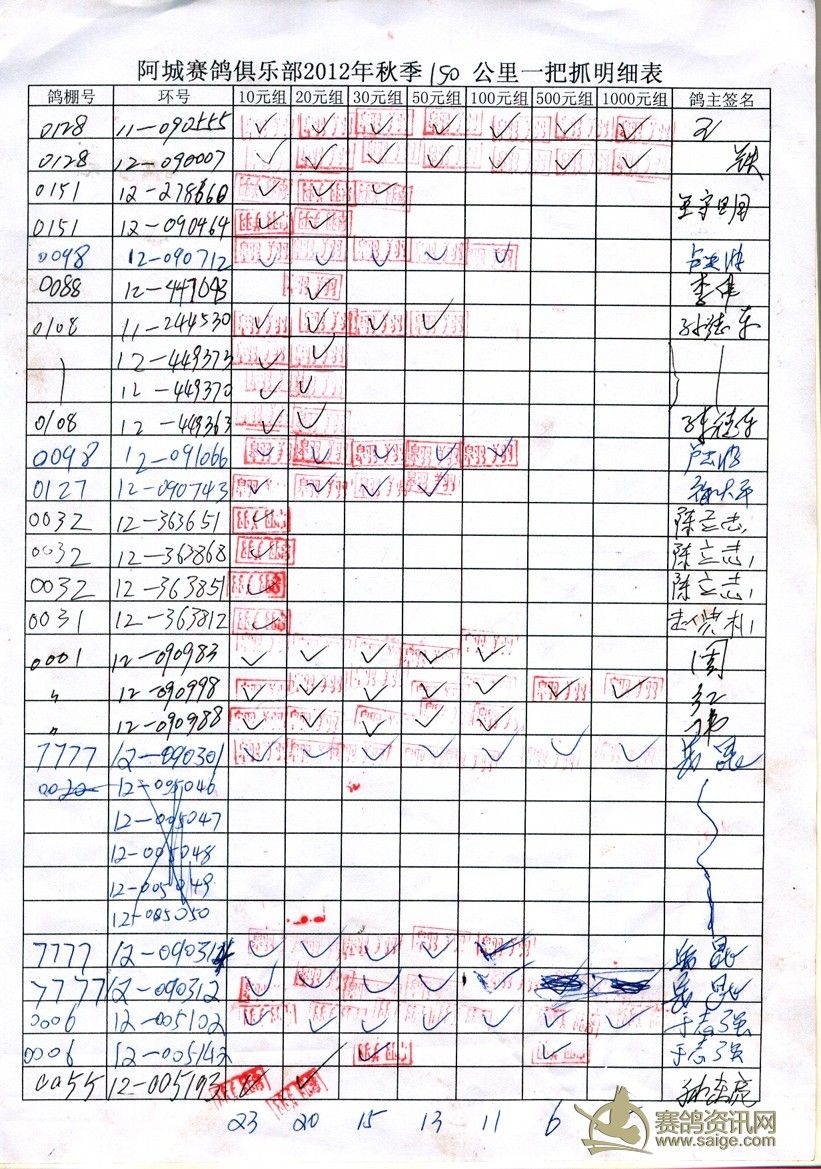 阿城赛鸽俱乐部2012年秋季150公里一把抓明细表
鸽棚号 环号 10元组 20元组 30元组 50元组 100元组 500元组 1000元组 鸽主签名
0128 11-090555 ✓ ✓ ✓ ✓ ✓ ✓ ✓ 王
0128 12-090007 ✓ ✓ ✓ ✓ ✓ ✓ ✓ 铁
0151 12-278660 ✓ ✓ ✓
0151 12-090464 ✓ ✓
0098 12-090712 ✓ ✓ ✓ ✓ ✓
0088 12-447643 ✓ 李伟
0108 11-244530 ✓ ✓ ✓ ✓
12-449373 ✓ ✓
12-449370 ✓ ✓
0108 12-449363 ✓ ✓
0098 12-091066 ✓ ✓ ✓ ✓ ✓
0127 12-090743 ✓ ✓ ✓ ✓
0032 12-363651 ✓ 陈立志
0032 12-363868 ✓ 陈立志
0032 12-363851 ✓ 陈立志
0031 12-363812 ✓
0001 12-090983 ✓ ✓ ✓ ✓ ✓ 周
〃 12-090998 ✓ ✓ ✓ ✓ ✓ ✓ ✓ 红
〃 12-090988 ✓ ✓ ✓ ✓ ✓
7777 12-090301 ✓ ✓ ✓ ✓ ✓ ✓ ✓
0032 12-005046
12-005047
12-005048
12-005049
12-005050
7777 12-090314 ✓ ✓ ✓ ✓
7777 12-090312 ✓ ✓ ✓ ✓ ✓
0006 12-005102 ✓ ✓ ✓ ✓ ✓ ✓ ✓ 于志强
0006 12-005142 ✓ ✓ 于志强
0055 12-005193 ✓ ✓
23 20 15 13 11 6
赛鸽资讯网
www.saige.com